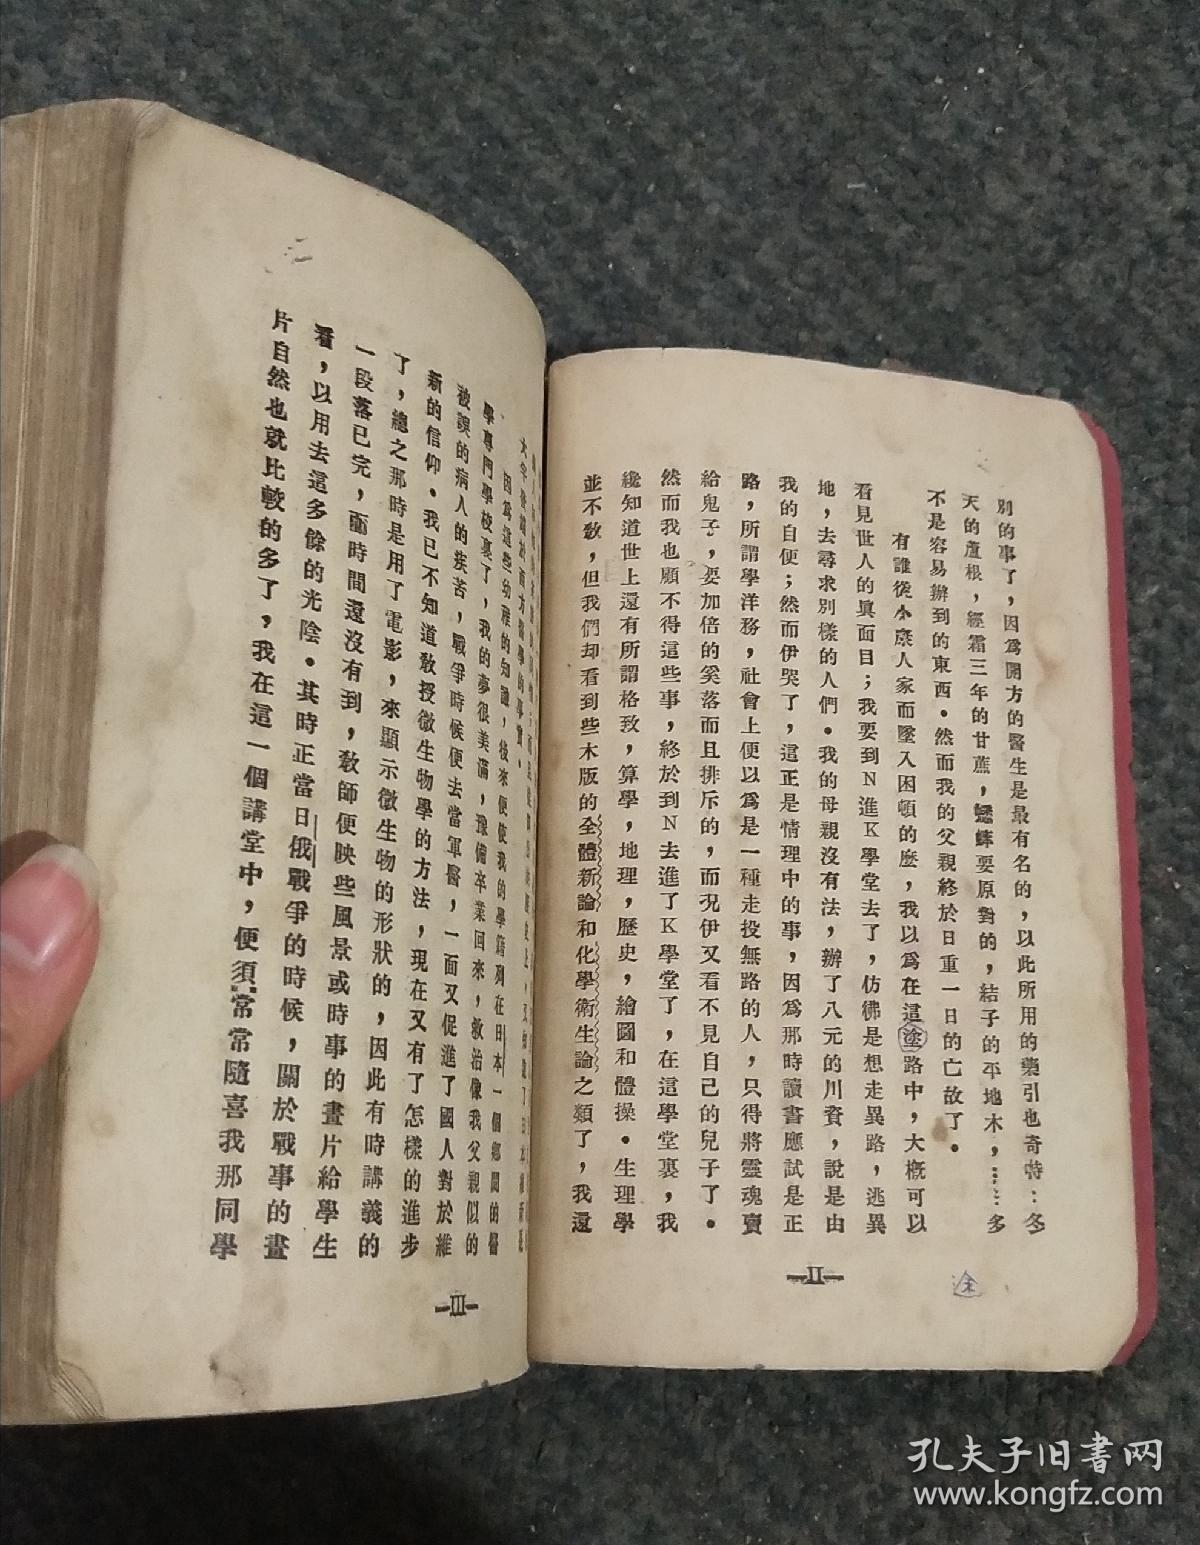 別的事了，因爲開方的醫生是最有名的，以此所用的藥引也奇特：冬
天的蘆根，經霜三年的甘蔗，蟋蟀要原對的，結子的平地木，……多
不是容易辦到的東西。然而我的父親終於日重一日的亡故了。
有誰從小康人家而墜入困頓的麼，我以爲在這塗路中，大槪可以
看見世人的眞面目；我要到N進K學堂去了，仿彿是想走異路，逃異
地，去尋求別樣的人們。我的母親沒有法，辦了八元的川資，說是由
我的自便；然而伊哭了，這正是情理中的事，因爲那時讀書應試是正
路，所謂學洋務，社會上便以爲是一種走投無路的人，只得將靈魂賣
給鬼子，要加倍的奚落而且排斥的，而况伊又看不見自己的兒子了。
然而我也顧不得這些事，終於到N去進了K學堂了，在這學堂裏，我
纔知道世上還有所謂格致，算學，地理，歷史，繪圖和體操。生理學
並不敎，但我們却看到些木版的全體新論和化學衛生論之類了，我還
—II—
途
大半發端於西方醫學的事實。
因爲這些幼稚的知識，後來便使我的學籍列在日本一個鄉間的醫
學專門學校裏了，我的夢很美滿，豫備卒業回來，救治像我父親似的
被誤的病人的疾苦，戰爭時候便去當軍醫，一面又促進了國人對於維
新的信仰。我已不知道敎授微生物學的方法，現在又有了怎樣的進步
了，總之那時是用了電影，來顯示微生物的形狀的，因此有時講義的
一段落已完，而時間還沒有到，敎師便映些風景或時事的畫片給學生
看，以用去這多餘的光陰。其時正當日俄戰爭的時候，關於戰事的畫
片自然也就比較的多了，我在這一個講堂中，便須常常隨喜我那同學
—III—
孔夫子旧書网
www.kongfz.com